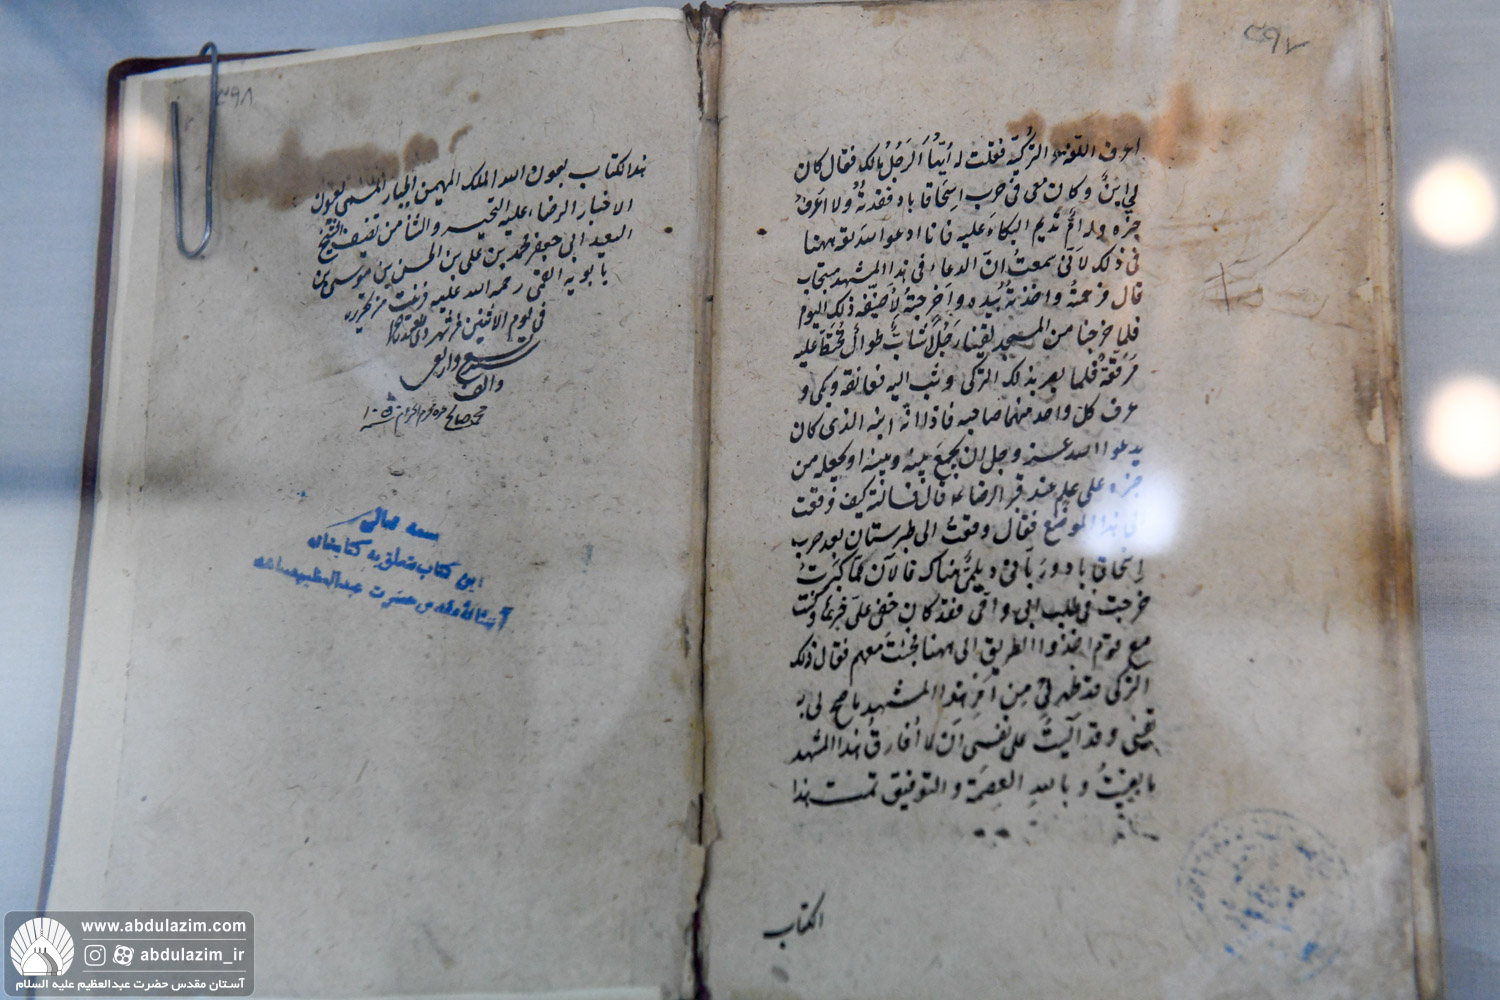 ۳۹۷
اعرف اللغة التركية فقلت له أيّها الرجل مالك فقال كان
لي ابن وكان معى فى حرب اسحاقاباد ففقدته ولا اعرف
خبره وله امّ تديم البكاء عليه فانا ادعوا الله تع ههنا
فى ذلك لأنّى سمعت انّ الدعاء فى هذا المشهد مستجاب
قال فرحمته واخذته بيده واخرجته لأضيّفه ذلك اليوم
فلما خرجنا من المسجد لقينا رجلا شابّ طوال مختطّا عليه
مرقّعة فلما بصر بذلك التركى وثب اليه فعانقه وبكى و
عرف كل واحد منهما صاحبه فاذا انه ابنه الذى كان
يدعوا الله عز وجل ان يجمع بينه وبينه او يجعله من
خبره على علم عند قبر الرضا ع قال فسألته كيف وقعت
الى هذا الموضع فقال وقعت الى طبرستان بعد حرب
اسحاقاباد وربّانى ديلمىّ هناك فالآن لمّا كبرت
خرجت فى طلب ابى وامّى فقد كان خفى علىّ خبرهما وكنت
مع قوم اخذوا الطريق الى ههنا فجئت معهم فقال ذلك
التركى قد ظهر لى من امر هذا المشهد ما صح لى به
يقينى وقد آليت على نفسى ان لا أفارق هذا المشهد
ما بقيت وبالله العصمة والتوفيق تمت هذا
الكتاب
۳۹۸
هذا الكتاب بعون الله الملك المهيمن الجبار المسمى بعيون
الاخبار الرضاء عليه التحية والثنا من تصنيف الشيخ
السعيد ابى جعفر محمد بن على بن الحسين بن موسى بن
بابويه القمى رحمه الله عليه فرغت من تحريره
فى يوم الاثنين شهر ذى
سبع واربعين
والف
محمد صالح
بسمه تعالى
این کتاب متعلق به کتابخانه
آستانه مقدس حضرت عبدالعظیم
www.abdulazim.com
abdulazim_ir
آستان مقدس حضرت عبدالعظیم علیه السلام